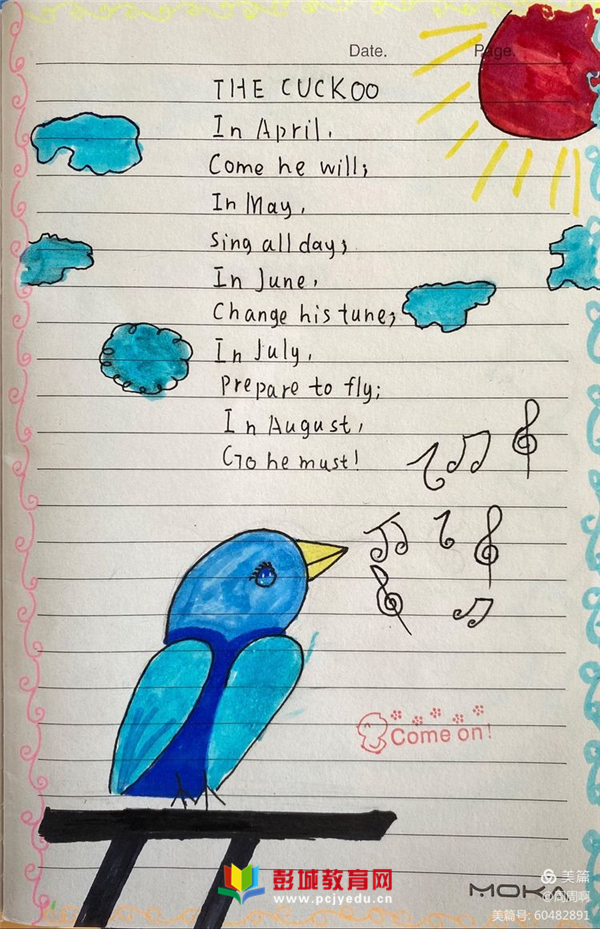 Date.
Page.
THE CUCKOO
In April,
Come he will;
In May,
Sing all day;
In June,
Change his tune;
In July,
Prepare to fly;
In August,
Go he must!
Come on!
彭城教育网
www.pcjyedu.cn
MOKA
美篇
@周周啊
美篇号: 60482891